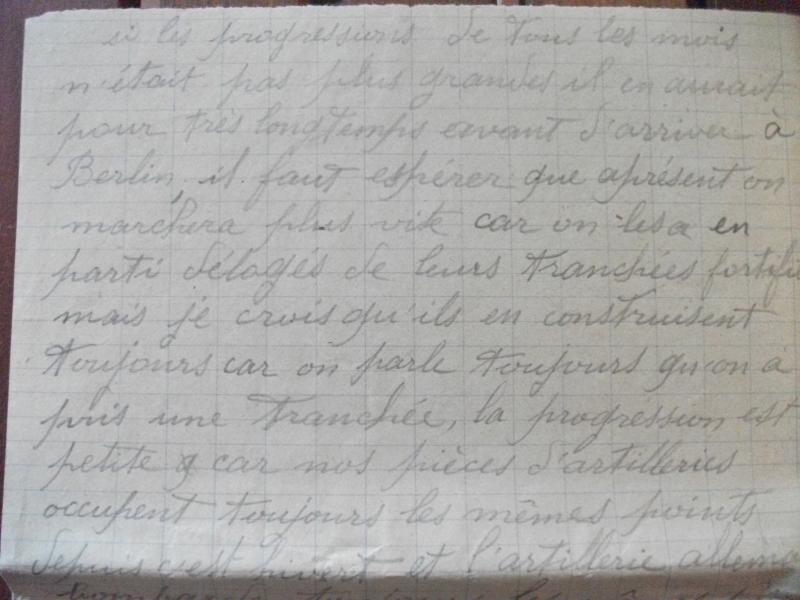 si les progressions de tous les mois
n'était pas plus grandes il en aurait
pour très longtemps avant d'arriver à
Berlin, il faut espérer que aprésent on
marchera plus vite car on les a en
parti délogés de leurs tranchées fortifi
mais je crois qu'ils en construisent
toujours car on parle toujours qu'on a
pris une tranchée, la progression est
petite car nos pièces d'artilleries
occupent toujours les mêmes points
depuis cest hivert et l'artillerie allema